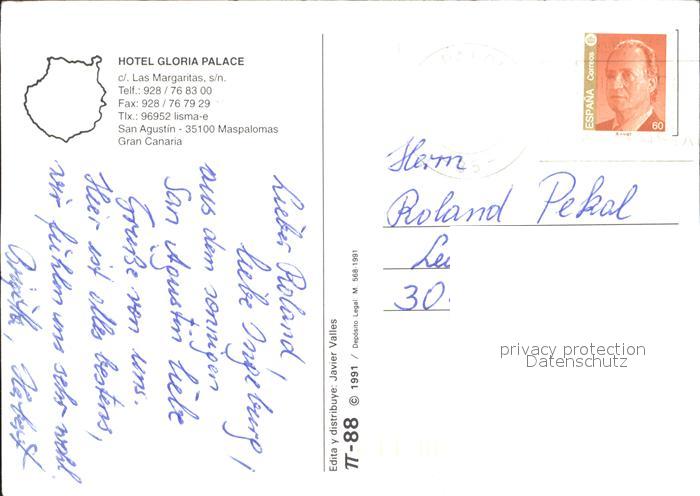 HOTEL GLORIA PALACE
c/. Las Margaritas, s/n.
Telf.: 928 / 76 83 00
Fax: 928 / 76 79 29
Tlx.: 96952 lisma-e
San Agustín - 35100 Maspalomas
Gran Canaria
Lieber Roland,
liebe Ingeburg!
aus dem sonnigen
San Agustin liebe
Grüße von uns.
Hier ist alles bestens,
wir fühlen uns sehr wohl
Brigitte, Herbert
Edita y distribuye: Javier Valles
π-88 © 1991 / Depósito Legal: M. 568-1991
ESPAÑA Correos
60
Herrn
Roland Pekal
30
privacy protection
Datenschutz